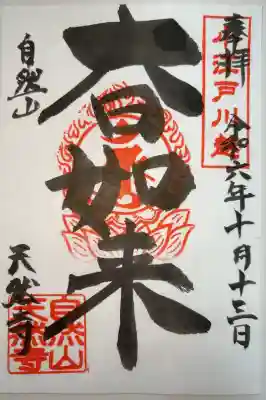 奉拝
小江戸川越
令和六年十月十三日
大日如来
自然山
天然寺
自然山
天然寺